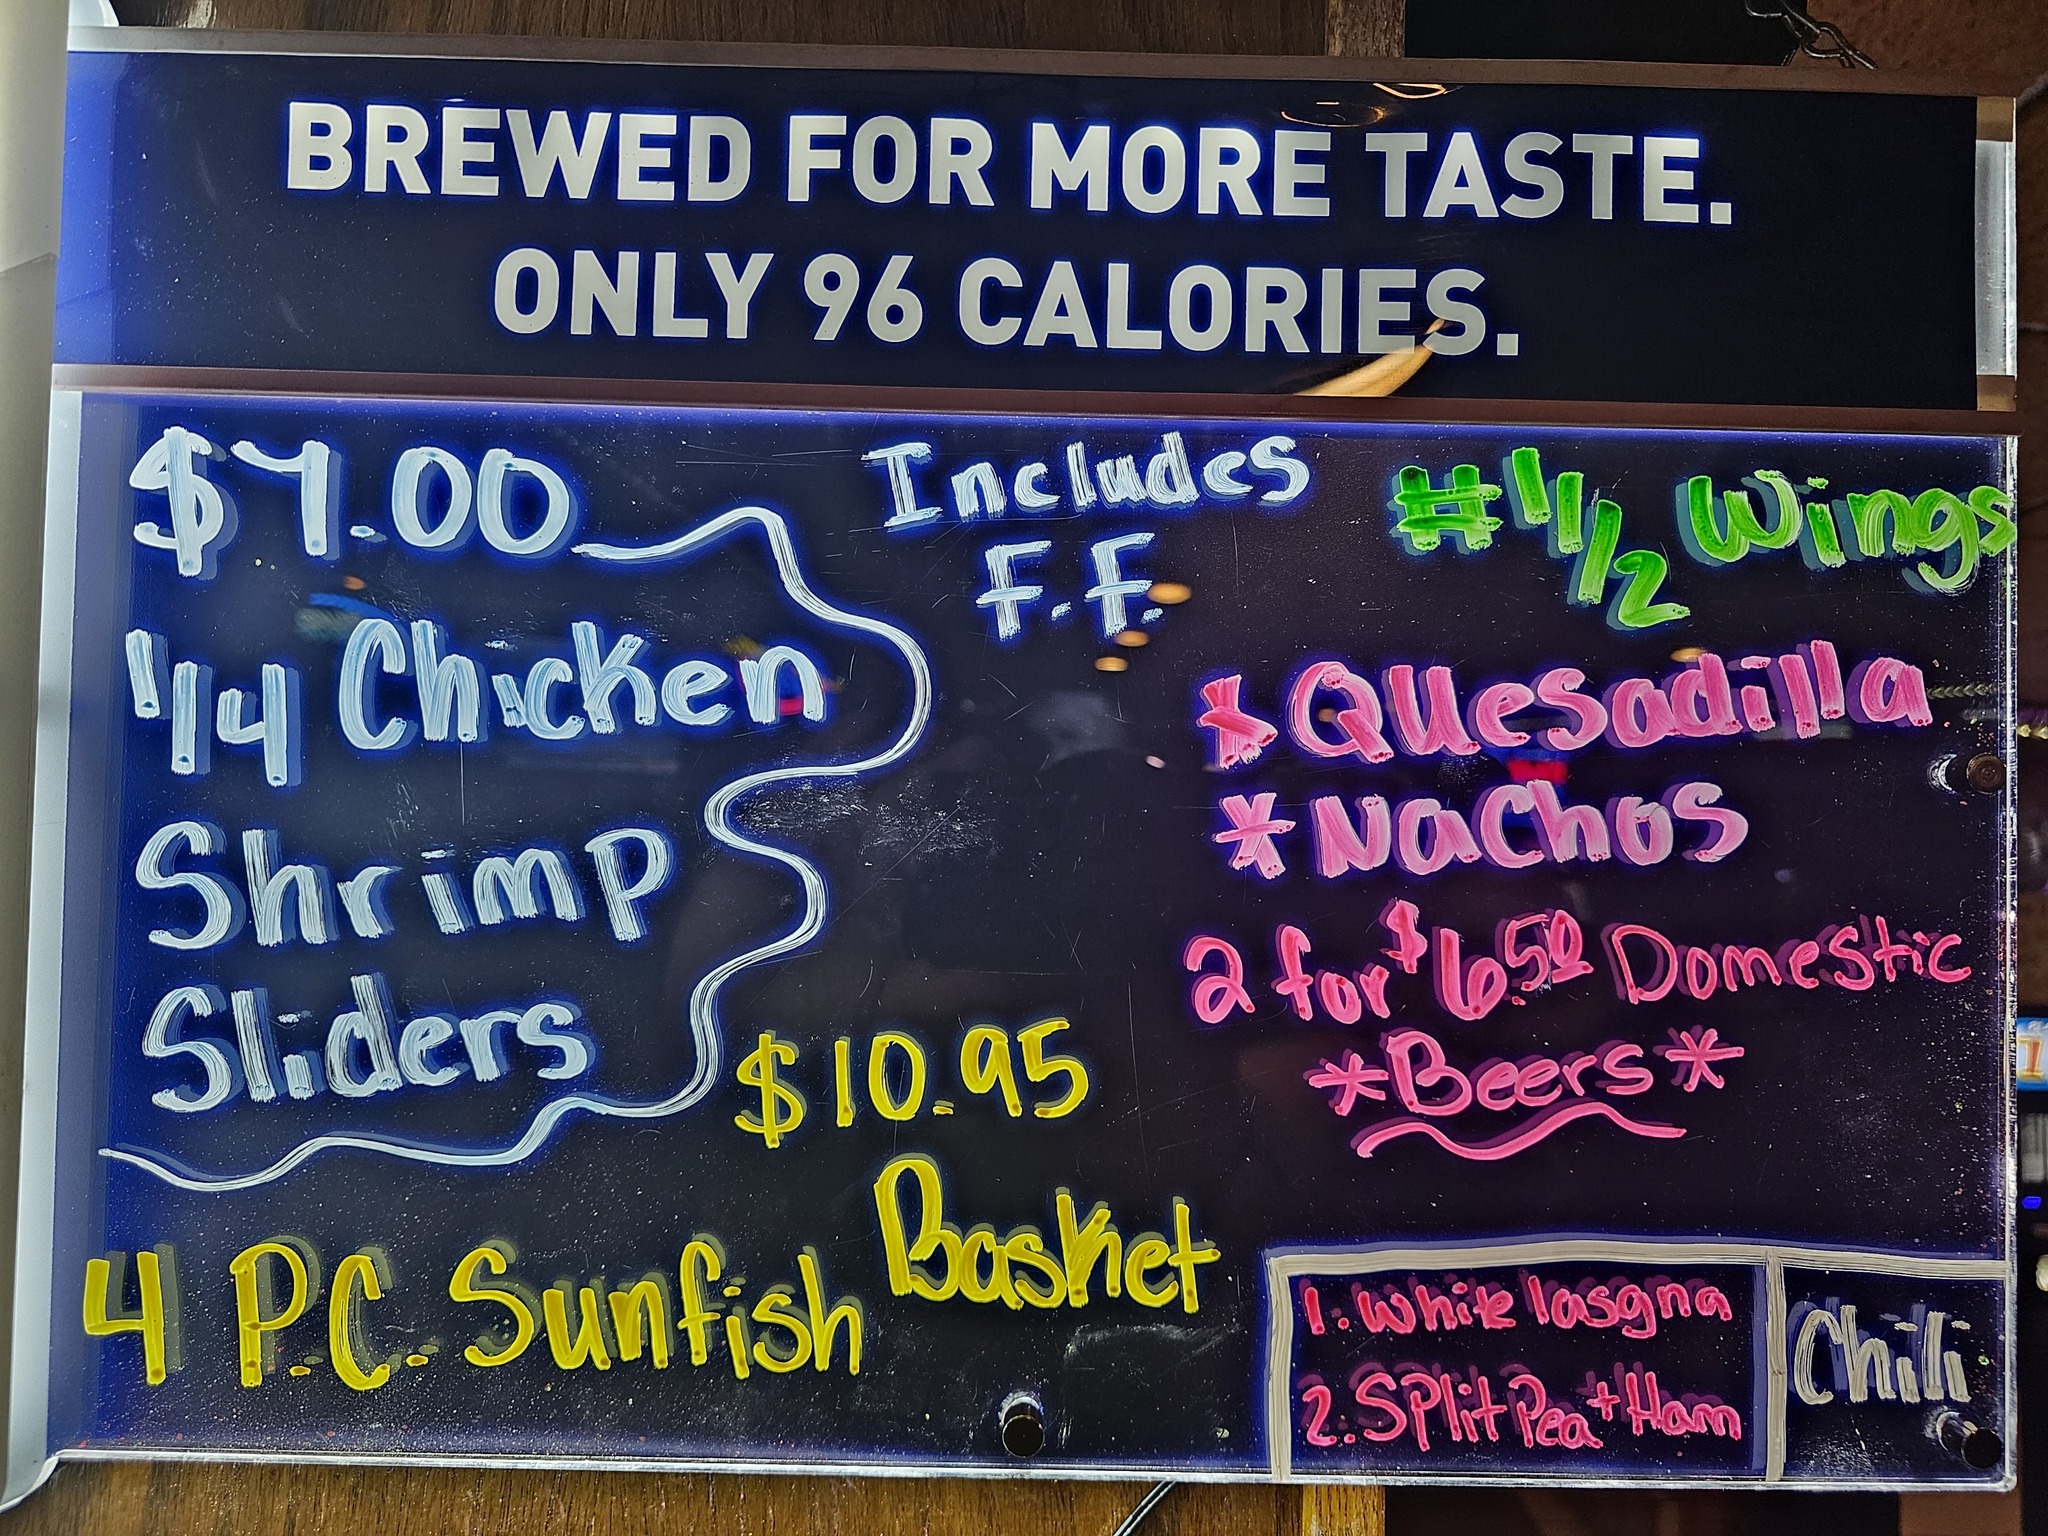 BREWED FOR MORE TASTE.
ONLY 96 CALORIES.
$7.00
1/4 Chicken
Shrimp
Sliders
Includes
F.F.
$10.95
4 P.C. Sunfish Basket
# 1/2 Wings
* Quesadilla
* Nachos
2 for $6.50 Domestic
* Beers *
1. White lasgna
2. Split Pea + Ham
Chili
1